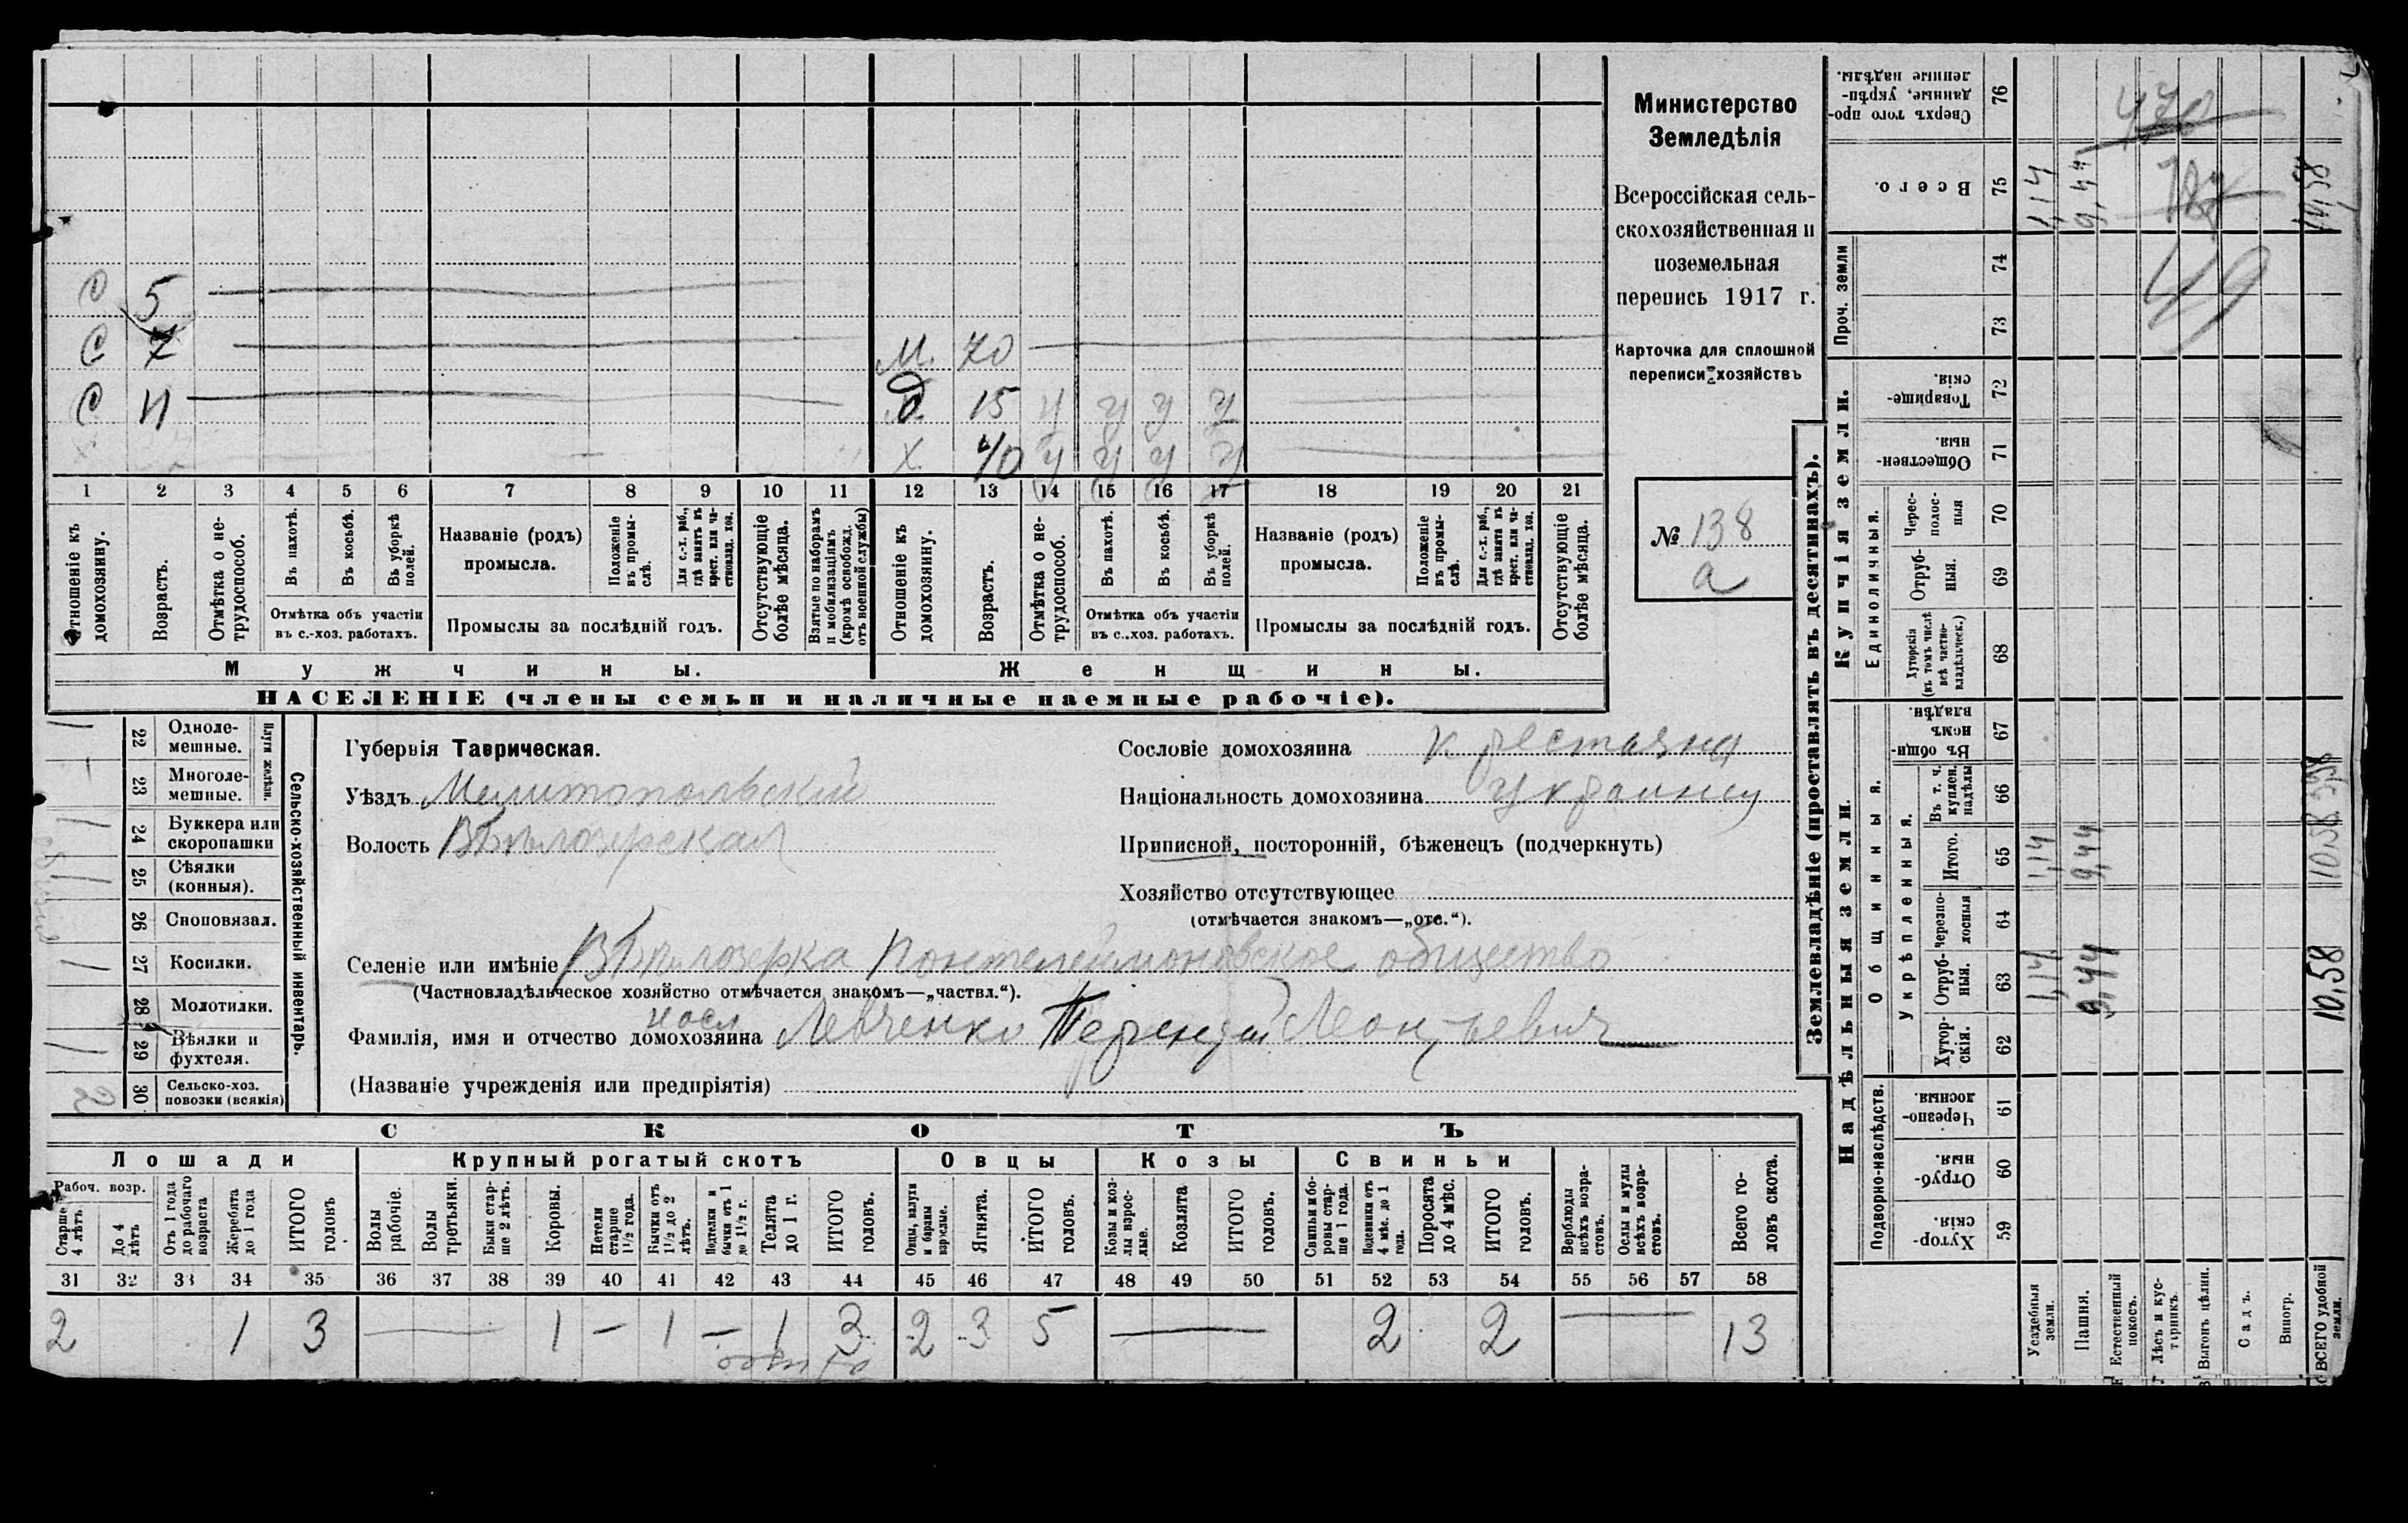 С 5
С 7 М. 70
С 11 д 15 у у у у
Х 40 у у у у
1 2 3 4 5 6 7 8 9 10 11 12 13 14 15 16 17 18 19 20 21
Отношеніе къ домохозяину.
Возрастъ.
Отмѣтка о не-трудоспособ.
Въ пахотѣ.
Въ косьбѣ.
Въ уборкѣ полей.
Отмѣтка объ участіи
въ с.-хоз. работахъ.
Названіе (родъ)
промысла.
Положеніе въ промы-слѣ.
Для с.-х. раб., гдѣ занятъ въ крест. или ча-стновлад. хоз.
Промыслы за послѣдній годъ.
Отсутствующіе болѣе мѣсяца.
Взятые по наборамъ и мобилизаціямъ (кромѣ освобожд. отъ военной службы)
Отношеніе къ домохозяину.
Возрастъ.
Отмѣтка о не-трудоспособ.
Въ пахотѣ.
Въ косьбѣ.
Въ уборкѣ полей.
Отмѣтка объ участіи
въ с.-хоз. работахъ.
Названіе (родъ)
промысла.
Положеніе въ промы-слѣ.
Для с.-х. раб., гдѣ занята въ крест. или ча-стновлад. хоз.
Промыслы за послѣдній годъ.
Отсутствующіе болѣе мѣсяца.
Мужчины.
Женщины.
НАСЕЛЕНІЕ (члены семьи и наличные наемные рабочіе).
Министерство
Земледѣлія
Всероссійская сель-
скохозяйственная и
поземельная
перепись 1917 г.
Карточка для сплошной
переписи хозяйствъ
№ 138
а
22 Одноле-мешные.
23 Многоле-мешные.
Плуги желѣзн.
24 Буккера или скоропашки
25 Сѣялки (конныя).
26 Сноповязал.
27 Косилки.
28 Молотилки.
29 Вѣялки и фухтеля.
30 Сельско-хоз. повозки (всякія)
Сельско-хозяйственный инвентарь.
Губернія Таврическая.
Уѣздъ Мелитопольскій
Волость Бѣлозерская
Сословіе домохозяина крестьянинъ
Національность домохозяина украинец
Приписной, посторонній, бѣженецъ (подчеркнуть)
Хозяйство отсутствующее
(отмѣчается знакомъ—„отс.“).
Селеніе или имѣніе Бѣлозерка Пантелеймоновское общество
(Частновладѣльческое хозяйство отмѣчается знакомъ—„частвл.“).
Фамилія, имя и отчество домохозяина Левченко Терентій Леонтьевич
(Названіе учрежденія или предпріятія)
СКОТЪ
Лошади Крупный рогатый скотъ Овцы Козы Свиньи
Рабоч. возр.
Старше 4 лѣтъ.
До 4 лѣтъ
Отъ 1 года до рабочаго возраста
Жеребята до 1 года
ИТОГО головъ
Волы рабочіе.
Волы третьяки.
Быки стар-ше 2 лѣтъ.
Коровы.
Нетели старше 1½ года.
Бычки отъ 1½ до 2 лѣтъ.
Подтелки и бычки отъ 1 до 1½ г.
Телята до 1 г.
ИТОГО головъ.
Овцы, валухи и бараны взрослые.
Ягнята.
ИТОГО головъ.
Козы и коз-лы взрос-лые.
Козлята
ИТОГО головъ.
Свиньи и бо-ровы стар-ше 1 года.
Подсвинки отъ 4 мѣс. до 1 года.
Поросята до 4 мѣс.
ИТОГО головъ.
Верблюды всѣхъ возра-стовъ.
Ослы и мулы всѣхъ возра-стовъ.
Всего го-ловъ скота.
31 32 33 34 35 36 37 38 39 40 41 42 43 44 45 46 47 48 49 50 51 52 53 54 55 56 57 58
2 1 3 — 1 — 1 — 1 3 2 3 5 — 2 2 — 13
Землевладѣніе (проставлять въ десятинахъ).
Купчія земли.
Надѣльныя земли.
Сверхъ того про-данные, укрѣп-ленные надѣлы. 76
Всего. 75
Проч. земли 74 73
Товарище-скія. 72
Обществен-ныя. 71
Единоличныя.
Черес-полос-ныя 70
Отруб-ныя. 69
Хуторскія (въ томъ числѣ всѣ частно-владѣльческ.) 68
Общинныя.
Въ общин-номъ владѣн. 67
Укрѣпленныя.
Въ т. ч. куплен. надѣлы 66
Итого. 65
Черезпо-лосныя 64
Отруб-ныя. 63
Хутор-скія. 62
Подворно-наслѣдств.
Черезпо-лосныя. 61
Отруб-ныя. 60
Хутор-скія. 59
Усадебныя земли. 1,14 1,14 1,14
Пашня. 9,44 9,44 9,44
Естественный покосъ.
Лѣсъ и кус-тарникъ.
Выгонъ цѣлин.
Садъ.
Виногр.
ВСЕГО удобной земли. 10,58 10,58
470
49